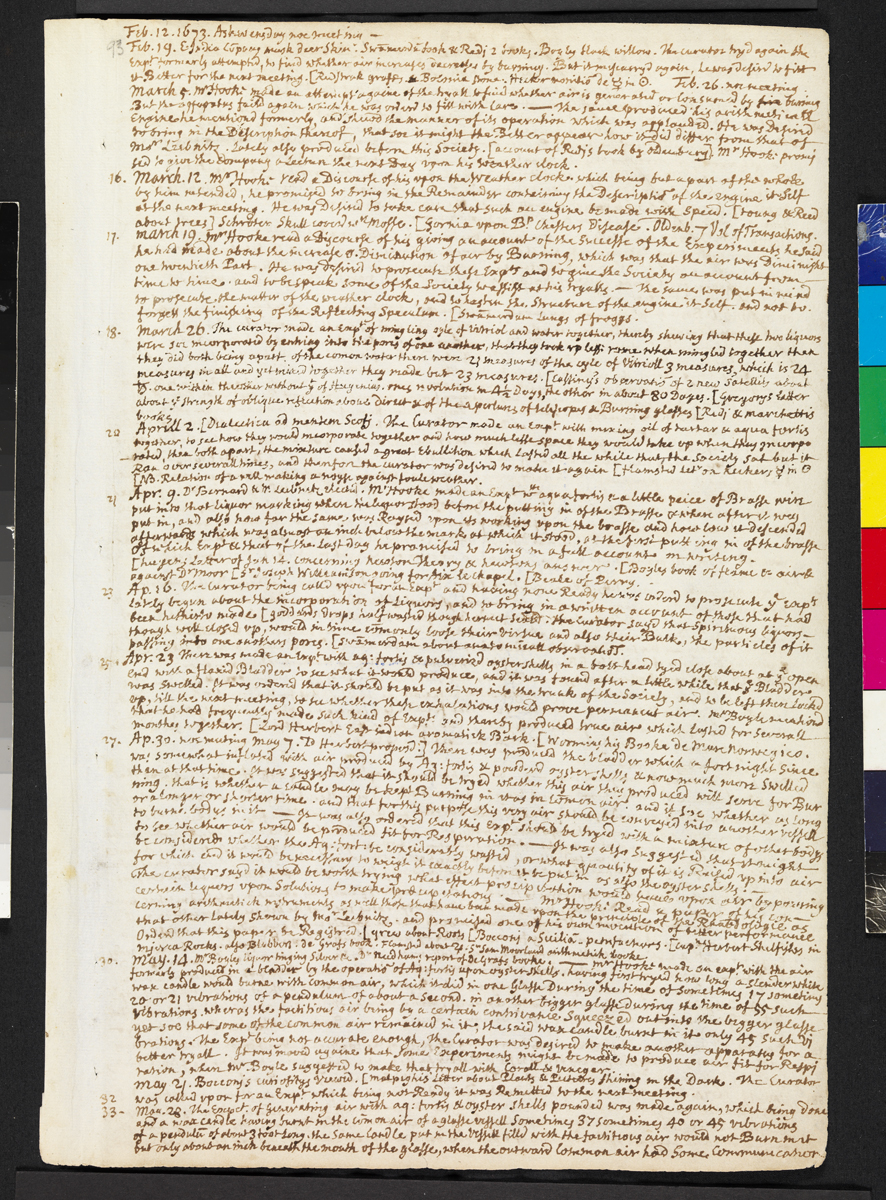 Feb. 12. 1673. Ashwensday noe meeting —
93 Feb. 19. E. India Copany musk dear Skin. Swamerds book & Redj 2 books. Boyles black willow. The curator tryd again the
Expt formerly attempted, to find whether air increases decreases by burning. But it miscarryd again, he was desird to fitt
it Better for the next meeting. & Bolonia stone. in ☉. Feb. 26. noe meeting
March 5. Mr Hooke made an attempt againe of the tryall to find whether air is generated or consumed by burning
But the apparatus faild again which he was orderd to fitt with Care. — The same produced his arithmeticall
Engine he mentiond formerly, and shewd the manner of its operation which was applauded. He was desired
to bring in the Description thereof, that soe it might the Better appear how it did differ from that of
Monsr Leibnitz. Lately also produced before this Society. [account of Redjs book by Oldenburg] Mr Hooke promi
sed to give the Company a Lecture the next Day upon his weather clock.
16. March. 12. Mr Hooke read a Discourse of his upon the Weather clock which being but a part of the whole
by him intended, he promised to bring in the Remainder containing the Description of the engine it Self
at the next meeting. He was Desired to take care that such an engine be made with Speed. [young & Reed
about trees] Schroter Skull coverd wth Mosse. [Gornia upon Bp Chesters Disease. Oldenb. 7 Vol of Transactions.
17. March 19. Mr Hooke read a Discourse of his giving an account of the Successe of the Experiments he said
he had made about the increase or Diminution of air by Burning, which was that the air was Diminisht
one twentieth Part. He was desired to prosecute these Expts and to give the Society an account from
time to time. and to bespeak some of the Society to assist at his tryalls. — The same was put in mind
to prosecute the matter of the weather clock, and to hasten the Structure of the engine it Self. and not to
forgett the finishing of the Reflecting Speculum. [Swammerdam Lungs of froggs.
18. March 26. The curator made an Expt of mingling oyle of Vitriol and water together, thereby shewing that these two liquors
were soe incorporated by entring into the pores of one another, that they took up lesse roome when mingled together than
they did both being apart, of the comon water there were 21 measures of the oyle of Vitrioll 3 measures, which is 24
measures in all and yet mixed together they made but 23 measures. [Cassinys observations of 2 new Satellits about
♄. one within the other without ye of Hugenius. ones revolution in 4½ Days, the other in about 80 Days. [Gregorys Letter
about ye strength of oblique reflection above direct & of the apertures of telescopes & Burning glasses [Redj & marchettis
books.
20 Aprill 2. [Dialectica ad mentem Scoti. The Curator made an Expt with mixing oil of tartar & aqua fortis
together, to see how they would incorporate together and how much lesse space they would take up when they Incorpo
rated, then both apart, the mixture caused a great Ebullition which lasted all the while that the Society sat but it
Ran over severall times, and therefore the curator was desired to make it again [flamsted Letr on Keckers ☿ in ☉
[NB. Relation of a well making a noyse against foule weather.
21 Apr. 9. Dr Bernard & Mr Leibnitz elected. Mr Hooke made an Expt wth aqua fortis & a little peice of Brasse wire
put into that liquor marking where the liquor stood before the putting in of the Brasse & where after it was
put in, and also how far the Same was Raysed upon its working upon the brasse and how low it descended
afterwards which was almost an inch below the mark at which it stood, at the first putting in of the brasse
of which Expt & that of the Last day he promised to bring in a full account in writing.
[hugens Letter of Jan 14. concerning newtons Theory & newtons answer. [Boyles book of flame & air &
against Dr Moor [Sr Joseph Williamson going for [Beale of Perry.
23 Ap. 16. The Curator being calld upon for an Expt and having none Ready he was orderd to prosecute ye Expts
Lately begun about the incorporation of Liquors, and to bring in a written account of those that had
been hitherto made [goddards drops half wasted though hermet Seald: the Curator sayd that Spirituous liquors —
though well closed up, would in time comonly loose their virtue and also their Bulk, the particles of it
passing into one anothers pores. [Swamerdam about anatomicall observations.
25. Apr. 23 There was made an Expt with aq: fortis & pulverized oystershells in a bolt head tyed close about at ye open
end with a flaxid Bladder to see what it would produce, and it was found after a little while that ye Bladder
was Swelled. It was orderd that it should be put as it was into the trunk of the Society, and to be left there Lockd
up, till the next meeting, to see whether these exhalations would prove permanent air. Mr Boyle mentiond
that he had frequently made such kind of Expts and thereby produced true air which lasted for Severall
months together. [Lord Herbert East indian aromatick Bark. [Wormius his Booke de Mure Norwegico.
27. Ap. 30. noe meeting May 7. Ld Herbert propos'd.] There was produced the bladder which a fortnight Since
was somewhat inflated with air produced by Aq: fortis & pouderd oyster shells & now much more Swelled
than at that time. It was suggested that it should be tryed whether this air thus produced will serve for Bur
ning. that is whether a candle may be kept Burning in it as in comon air. and if soe whether as long
or a longer or shorter time. and that for this purpose this very air should be conveyed into another vessell
to burne bodys in it — It was also orderd that this Expt. should be tryed with a mixture of other bodys
to see whether air would be produced fit for Respiration. — It was also Suggested that it might
be considered whether the Aq: fort: be considerably wasted, or what quantity of it is Raised up into air
for which end it would be necessary to weigh it exactly before it be put in as also the oyster shells. —
The curator sayd it would be worth trying what effect precipitation would have upon air by pouring
certain liquors upon Solutions to make precipitations — Mr Hooke Read a paper of his con
cerning arithmetick instruments as well those that have been made upon the principle of the Rhabdologie as
that other lately shown by Monsr Leibnitz. and promised one of his own invention of better performance
Orderd that this paper be Registred. [grew about Roots [Boccone a Sicilia - petrifactures. [Capt Herbert Shelfishes in
Rocks. also Blubber. de Grafs book. Flamsted about Sr Sam Moorland arithmetick booke.
30. May. 14. Mr Boyles liquor tinging Silver &c. Dr Needhams report of De Grafs booke. — Mr Hooke made an expt with the air
formerly produced in a bladder by the operation of Aq: fortis upon oyster shells. having first tryed how long a slender white
wax candle would burne with comon air, which it did in one Glasse During the time of Sometimes 17 Sometims
20 or 21 vibrations of a pendulum of about a second. in another bigger glasse during the time of 55 Such
vibrations. wheras the factitious air being by a certain contrivance Squeezed out into the bigger glasse
yet soe that some of the common air remained in it, the said wax candle burnt in it only 45 such vi
brations. The Expt being not accurate enough, The Curator was desired to make another apparatus for a
better tryall. It was moved againe that some Experiments might be made to produce air fit for Respi
ration, when Mr Boyle suggested to make that tryall with Corall & vineger.
May 21. Boccons curiositys Viewed. [malpighis Letter about Plants & Putrid Shining in the Dark. The Curator
82 was called upon for an Expt which being not Ready it was Remitted to the next meeting.
33 — May. 28. The Expt. of generating air with aq: fortis & oyster shells pounded was made again, which being done
and a wax candle having burnt in the comon air of a glasse vessell Sometimes 37 sometimes 40 or 45 vibrations
of a pendulum of about 3 foot Long. the same Candle put in the vessell filled with the factitious air would not Burn in it
but only about an inch beneath the mouth of the glasse, when the outward common air had some Communication